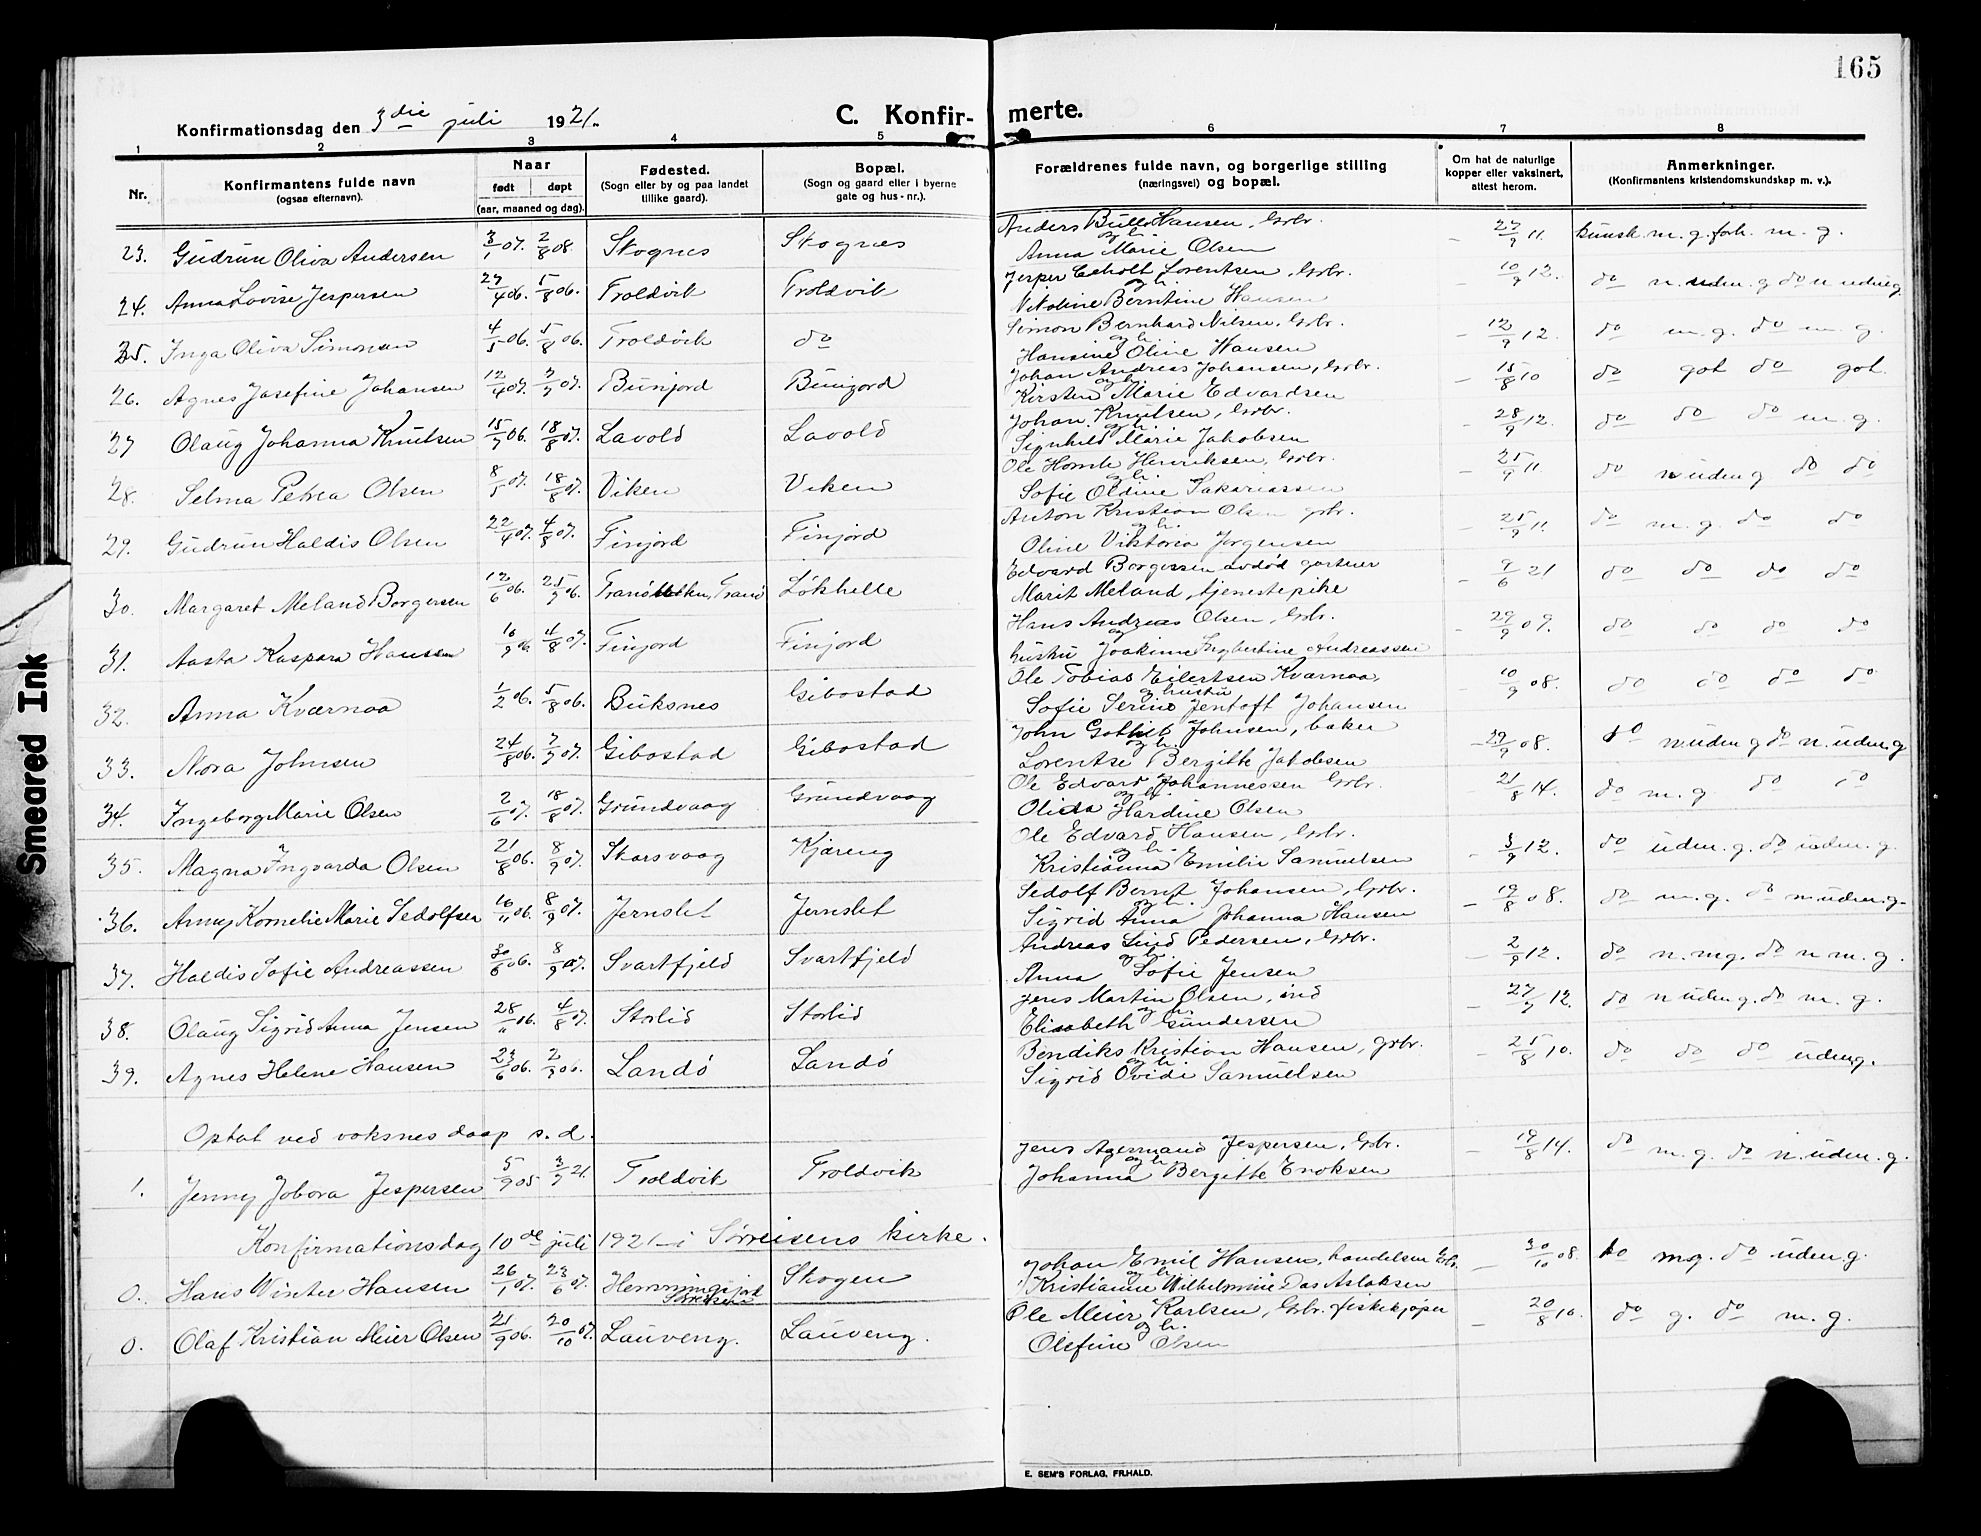 165
Konfirmationsdag den 3die juli 1921.
C. Konfir- merte.
1 2 3 4 5 6 7 8
Nr.
Konfirmantens fulde navn
(ogsaa efternavn).
Naar
født døpt
(aar, maaned og dag).
Fødested.
(Sogn eller by og paa landet
tillike gaard).
Bopæl.
(Sogn og gaard eller i byerne
gate og hus-nr.).
Forældrenes fulde navn, og borgerlige stilling
(næringsvei) og bopæl.
Om hat de naturlige
kopper eller vaksinert,
attest herom.
Anmerkninger.
(Konfirmantens kristendomskundskap m. v.).
23. Gudrun Oliva Andersen 3/1 07. 2/8 08 Skognes Skognes Anders Bull Hansen, Grbr. og h. Anna Marie Olsen – 27/9 11. kunsk m. g. forh. m. g.
24. Anna Lovise Jespersen 27/4 06. 5/8 06. Troldvik Troldvik Jesper Eeholt Lorentsen, Grbr. og h. Nikoline Berntine Hansen – 10/9 12. do n. uden. g do n uden g
25. Inga Oliva Simonsen 4/5 06. 5/8 06. Troldvik do Simon Bernhard Nilsen, Grbr. og h. Hansine Oline Hansen – 12/9 12. do m. g. do m. g.
26. Agnes Josefine Johansen 12/4 07. 7/7 07. Bunjord Bunjord Johan Andreas Johansen, Grbr. og h. Kirsten Marie Edvardsen – 15/8 10 do got do got.
27 Olaug Johanna Knutsen 15/7 06. 18/8 07. Lavold Lavold Johan Knutsen, Grbr. og h. Signhild Marie Jakobsen – 28/9 12. do do do m. g.
28. Selma Petrea Olsen 8/5 07. 18/8 07. Viken Viken Ole Henrik Henriksen, Grbr. og h. Sofie Oldine Sakariassen – 25/9 11. do n uden g do do
29. Gudrun Haldis Olsen 22/4 07. 4/8 07. Finjord Finjord Anton Kristian Olsen grbr. og h. Oline Viktoria Jørgensen – 25/9 11 do m. g. do do
30. Margaret Meland Borgersen 12/6 06. 25/7 06. Løkhelle Edvard Borgersen avdød gartner Marit Meland, tjenestepike – 9/6 21 do do do do
31. Aasta Kaspara Hansen 16/9 06. 4/8 07. Finjord Finjord Hans Andreas Olsen, Grbr. og hustru Joakime Ingbertine Andreassen – 29/9 09. do do do do
32. Anna Kværnaa 1/2 06. 5/8 06. Buksnes Gibostad Ole Tobias Eilertsen Kværnaa, og hustru Sofie Serine Jentoft Johansen – 10/9 08. do do do do
33. Nora Johnsen 24/8 06. 7/7 07. Gibostad Gibostad John Gotlieb Johnsen, baker og h. Lorentse Bergitte Jakobsen – 29/9 08. do n. uden g do n. uden. g
34. Ingeborg Marie Olsen 2/6 07. 18/8 07. Grundvaag Grundvaag Ole Edvard Johannessen Grbr. og h. Olida Hardine Olsen – 21/8 14. do m. g. do do
35. Magna Ingvarda Olsen 21/8 06. 8/9 07. Skarsvaag Kjæreng Ole Edvard Hansen, Grbr. og h. Kristianna Emilie Samuelsen – 3/9 12. do uden. g. do uden. g.
36. Anny Kornelie Marie Sedolfsen 16/11 06. 8/9 07. Jernslet Jernslet Sedolf Bernt Johansen, Grbr. og h. Sigrid Anna Johanna Hansen – 19/8 08. do m. g. do n uden. g.
37. Haldis Sofie Andreassen 30/6 06. 8/9 07. Svartfjeld Svartfjeld Andreas Lind Pedersen, Grbr. og h. Anna Sofie Jensen – 2/9 12. do n. mg. do n m. g.
38. Olaug Sigrid Anna Jensen 28/11 06. 4/8 07. Storlid Storlid Jens Martin Olsen, ind og h. Elisabeth Gundersen – 27/7 12. do n uden g. do m. g.
39. Agnes Helene Hansen 23/6 06. 2/9 06. Landø Landø Bendiks Kristian Hansen, grbr. og h. Sigrid Ovidi Samuelsen – 25/8 10. do do do uden g.
Optat ved voksnes daap s. d.
1. Jenny Jobora Jespersen 5/9 05 3/7 21. Troldvik Troldvik Jens Agermand Jespersen, Grbr. og h. Johanna Bergitte Enoksen – 19/8 14. do m. g. do n. uden. g.
Konfirmationsdag 10de juli 1921 i Sørreisens kirke.
0. Hans Winter Hansen 26/1 07. 23/6 07. Hemmingsjord Sørreisen Skogen Johan Emil Hansen, handelsm Grbr. og h. Kristianne Wilhelmine Das Aslaksen – 30/10 08. do mg. do uden g.
0. Olaf Kristian Meier Olsen 21/9 06. 20/10 07. Lauveng. Lauveng. Ole Meier Karlsen, Grbr. fiskekjøper og h. Olefine Olsen – 20/8 10. do g. do m. g.
E. SEM'S FORLAG, FR.HALD.
Smeared Ink